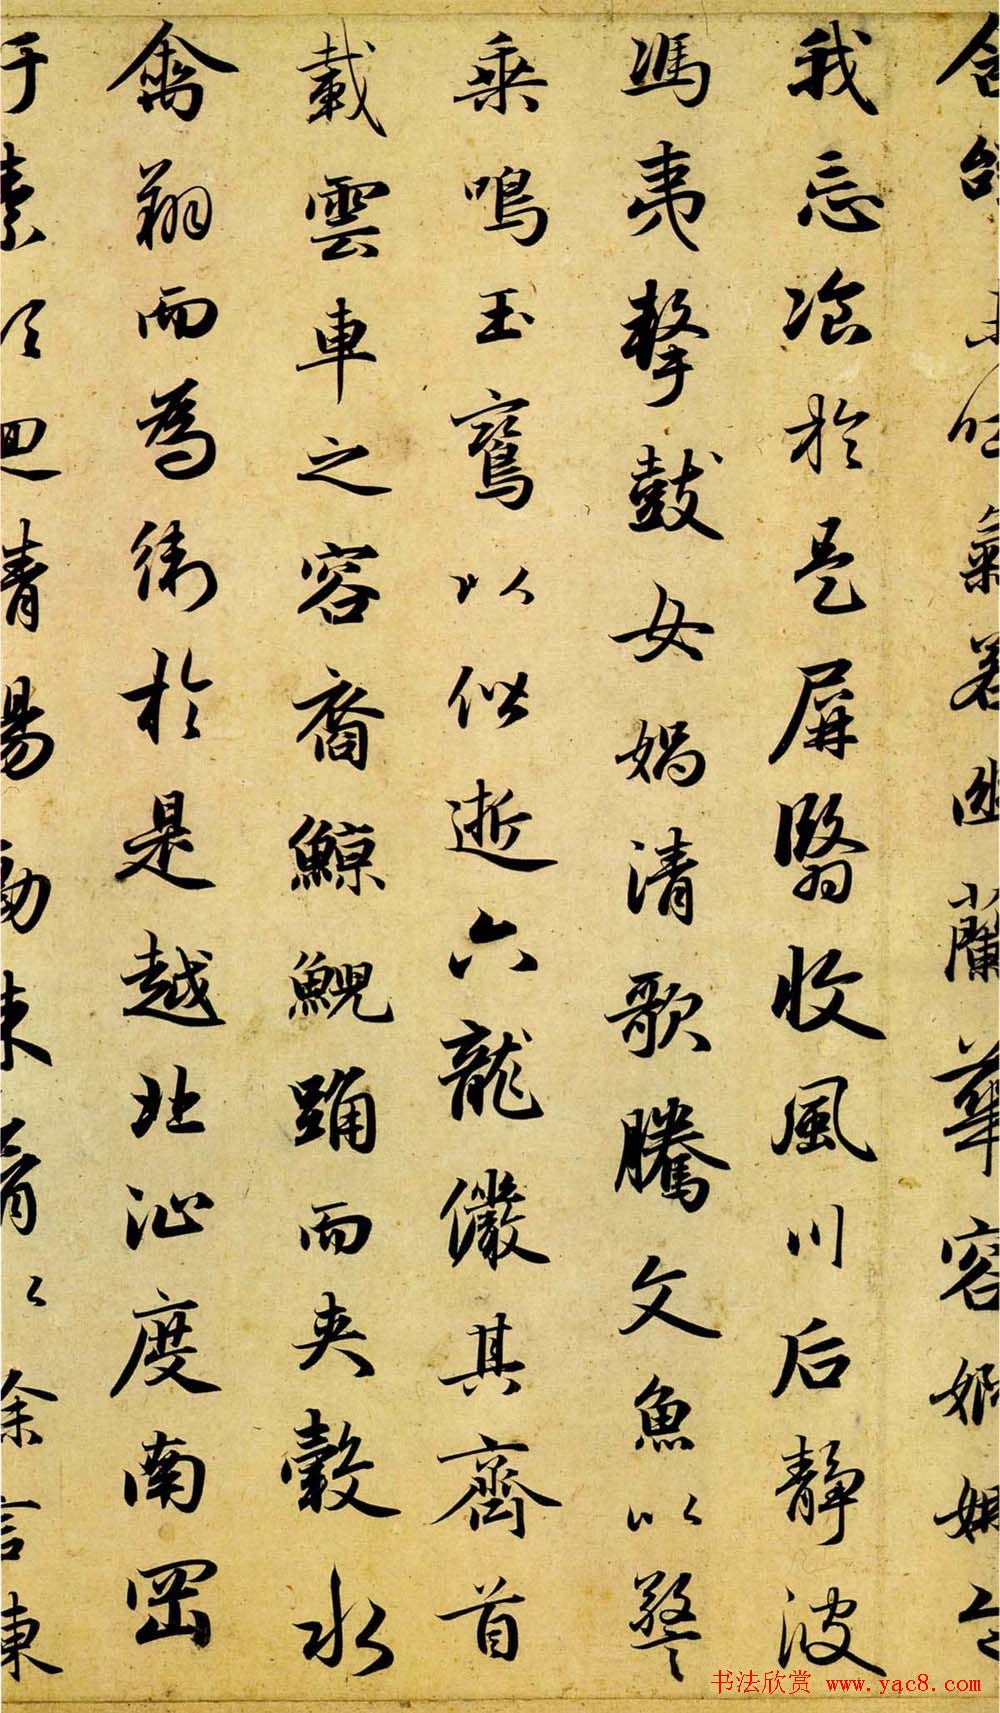 含辭未吐氣若幽蘭華容婀娜令
我忘飡於是屏翳收風川后靜波
馮夷擊鼓女媧清歌騰文魚以警
乘鳴玉鸞以偕逝六龍儼其齊首
載雲車之容裔鯨鯢踊而夾轂水
禽翔而為衛於是越北沚度南岡
紆素領迴清陽動朱脣以徐言陳
书法欣赏 www.yac8.com